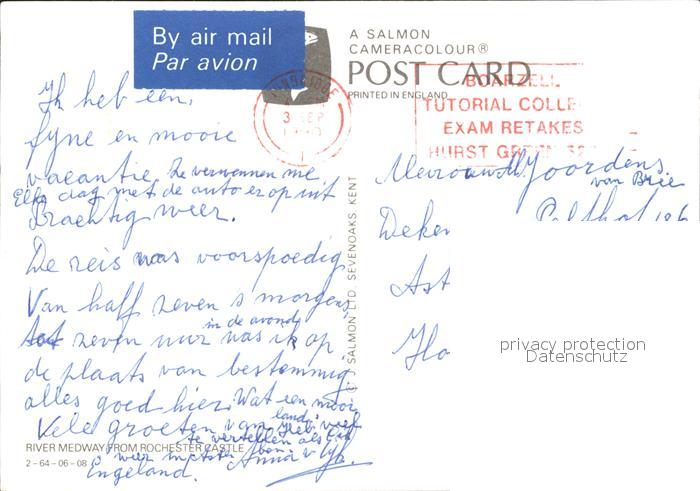 By air mail
Par avion
A SALMON
CAMERACOLOUR®
POST CARD
PRINTED IN ENGLAND
TUNBRIDGE
3 SEP
BOARZELL
TUTORIAL COLLE
EXAM RETAKES
HURST GREEN
Ik heb een
fyne en mooie
vacantie. Ze verwennen me
Elke dag met de auto er op uit
Prachtig weer.
De reis was voorspoedig
Van half zeven s morgens
tot zeven uur in de avond was ik op
de plaats van bestemming
alles goed hier. Wat een mooi
land. Heb veel
Vele groeten van
te vertellen als ik
weer in Asten ben.
Engeland. Anna v
Mevrouw M Joordens
van Brie
Deken
Ast
Ho
privacy protection
Datenschutz
J SALMON LTD. SEVENOAKS. KENT
RIVER MEDWAY FROM ROCHESTER CASTLE
2-64-06-08